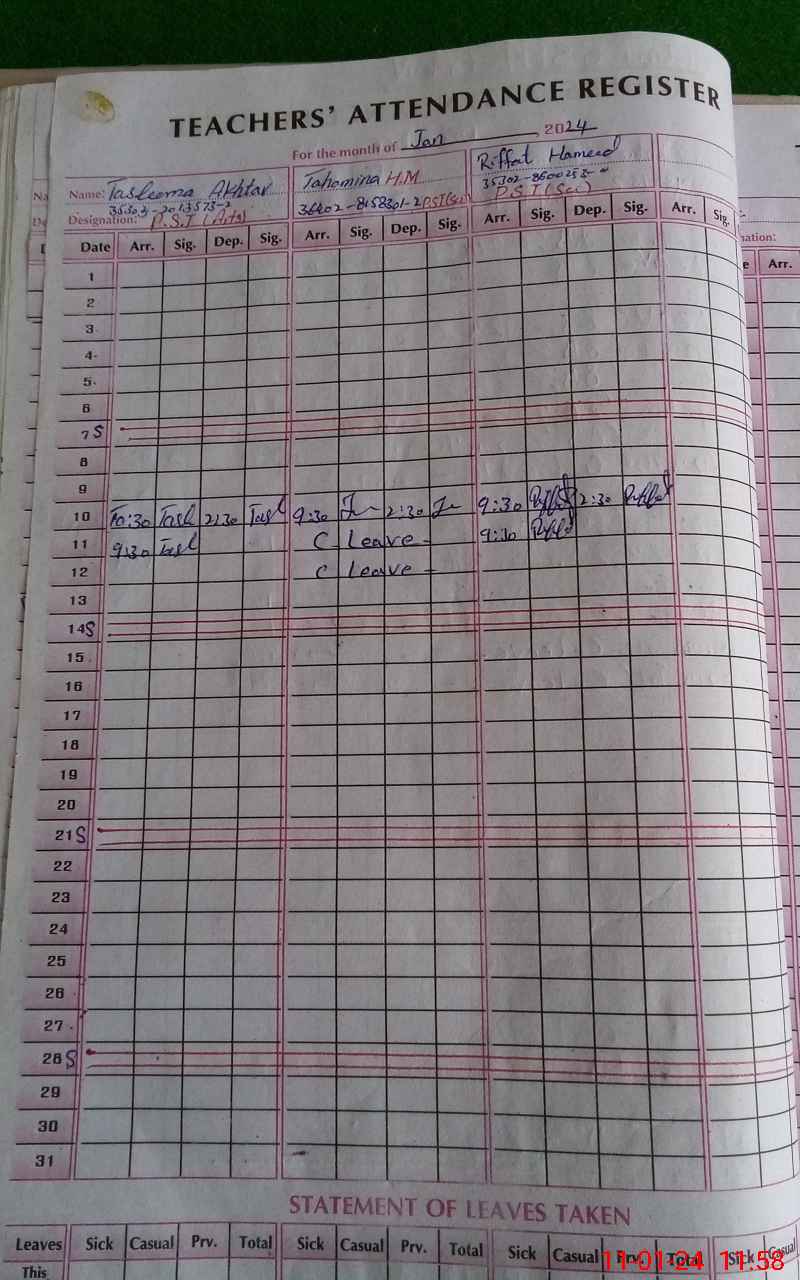 TEACHERS' ATTENDANCE REGISTER
For the month of Jan 2024
Name: Tasleema Akhtar Tahomina H.M Riffat Hameed
Designation: P.S.T (Arts) P.S.T (Sci)
Date Arr. Sig. Dep. Sig. Arr. Sig. Dep. Sig. Arr. Sig. Dep. Sig. Arr. Sig.
1
2
3
4
5
6
7 S
8
9
10 2:30 Tasl 9:30 2:30 9:30 Riffat 2:30 Riffat
11 9:30 Tasl C Leave - 9:30 Riffat
12 C Leave -
13
14 S
15
16
17
18
19
20
21 S
22
23
24
25
26
27
28 S
29
30
31
STATEMENT OF LEAVES TAKEN
Leaves Sick Casual Prv. Total Sick Casual Prv. Total Sick Casual Prv. Total Sick Casual
This
Arr.
11-01-24 11:58